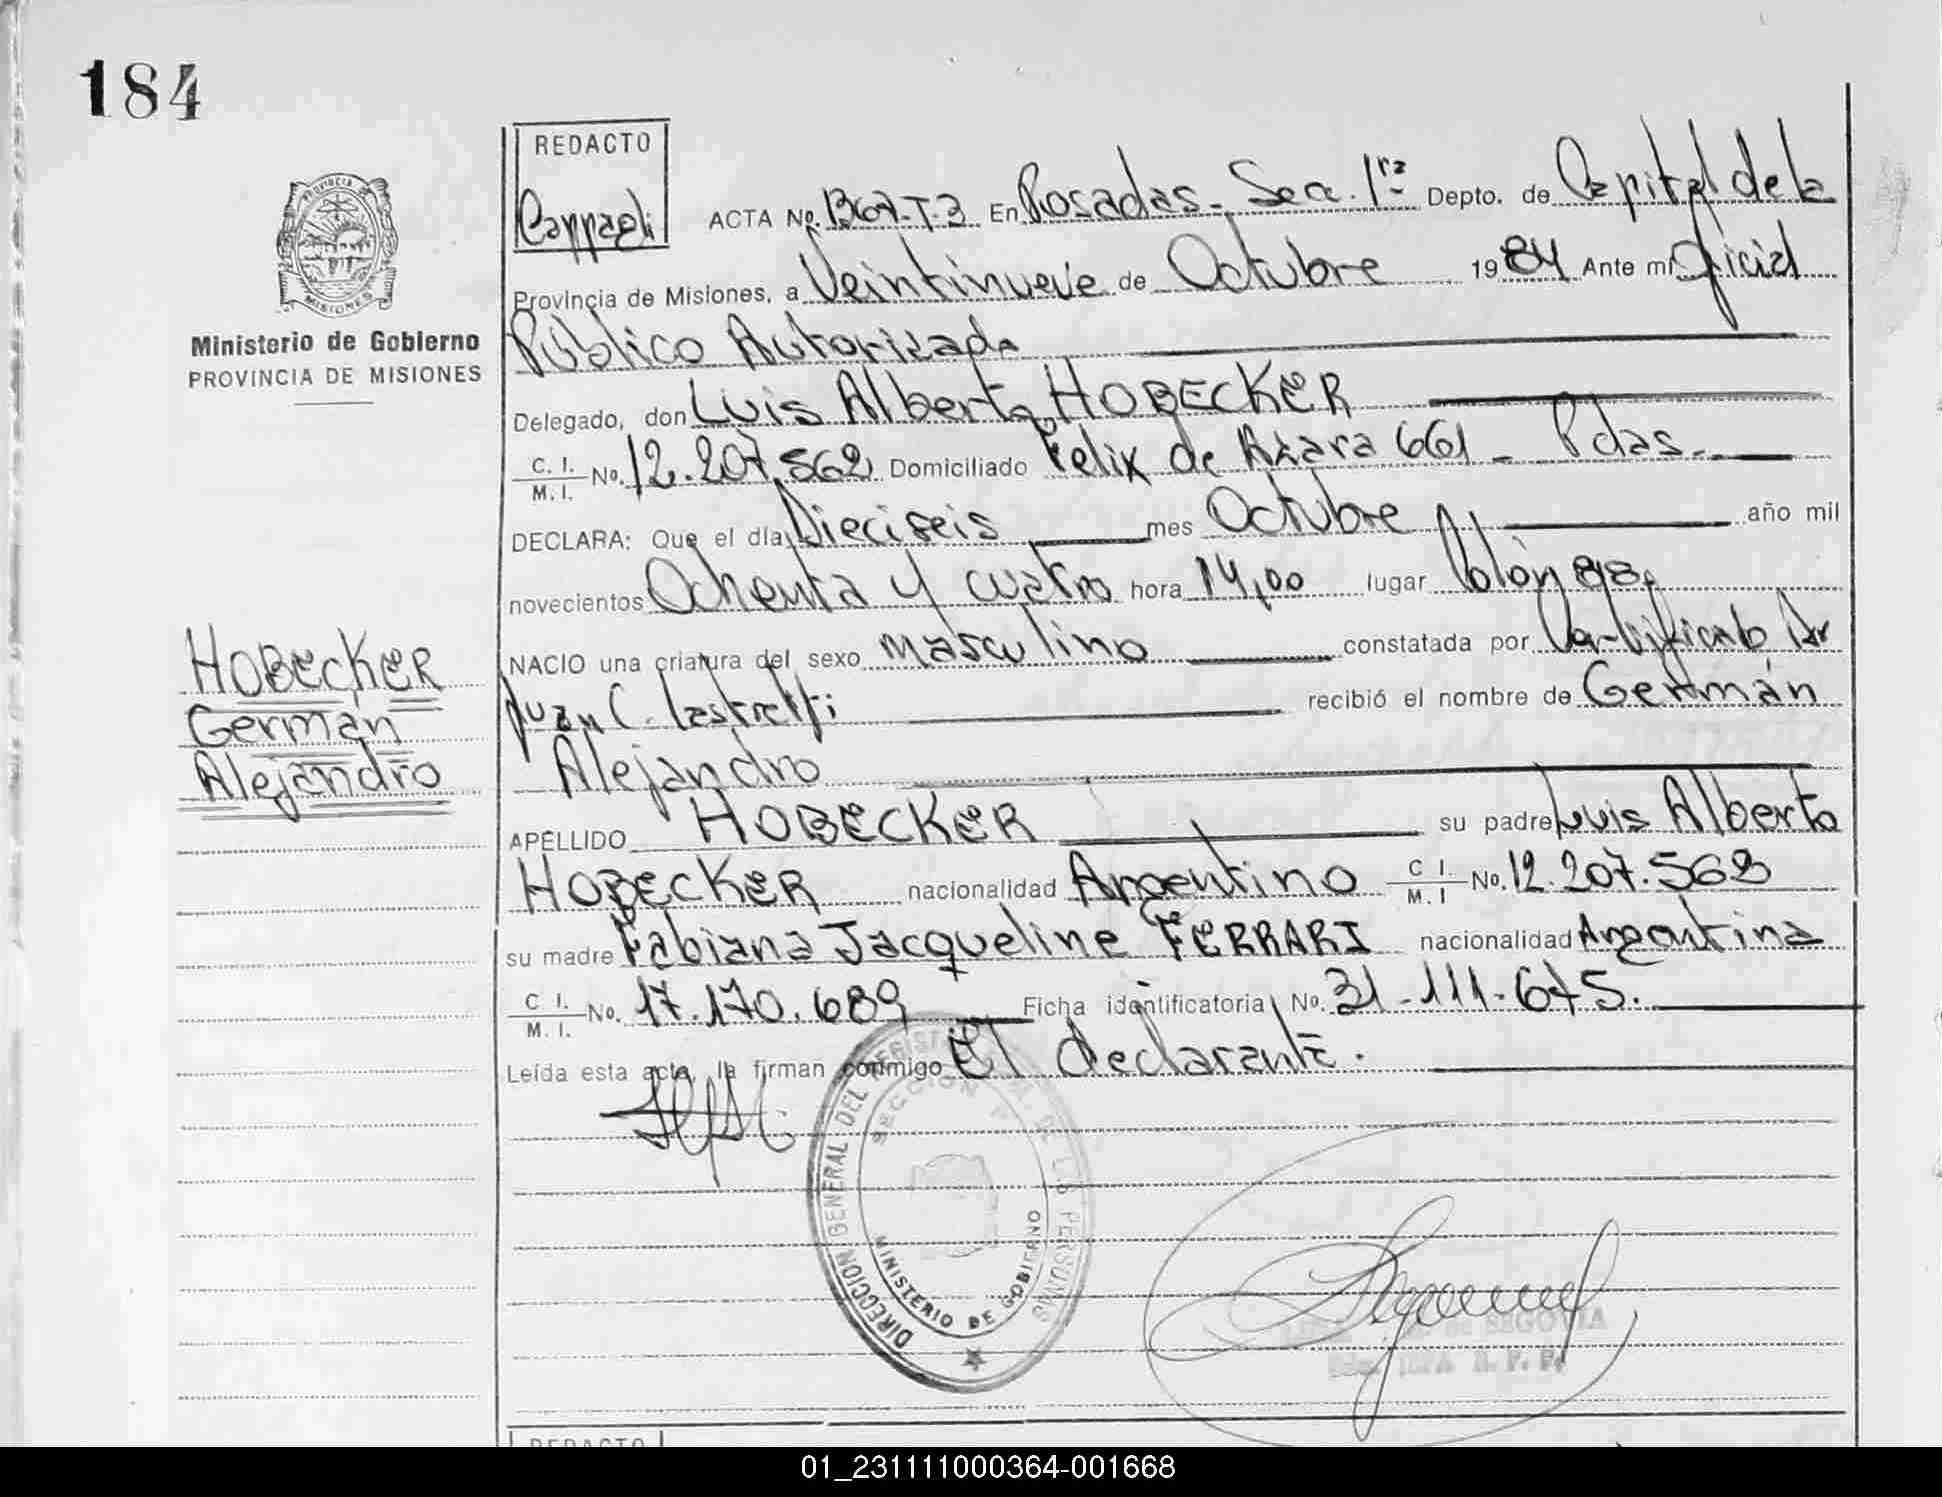 184
REDACTO
Cappagli
ACTA No. 1367-T-3 En Posadas - Secc. 1ra Depto. de Capital de la
PROVINCIA
MISIONES
Provincia de Misiones, a Veintinueve de Octubre 1984 Ante mi Oficial
Ministerio de Gobierno
PROVINCIA DE MISIONES
Público Autorizada
Delegado, don Luis Alberto HOBECKER
C. I. M. I. No. 12.207.562 Domiciliado Felix de Azara 661 - Pdas.
DECLARA: Que el día Dieciseis mes Octubre año mil
novecientos Ochenta y cuatro hora 14,00 lugar Colón
NACIO una criatura del sexo masculino constatada por Certificado Dr
Juan C. recibió el nombre de Germán
Alejandro
HOBECKER
Germán
Alejandro
APELLIDO HOBECKER su padre Luis Alberto
HOBECKER nacionalidad Argentino C I. M. I No. 12.207.562
su madre Fabiana Jacqueline FERRARI nacionalidad Argentina
C I. M. I. No. 17.170.689 Ficha identificatoria No. 31-111-675.
Leída esta acta, la firman conmigo El declarante.
DIRECCION GENERAL DEL REGISTRO DE LAS PERSONAS
SECCION 1
MINISTERIO DE GOBIERNO
de SEGOVIA
R. P. P.
REDACTO
01_231111000364-001668